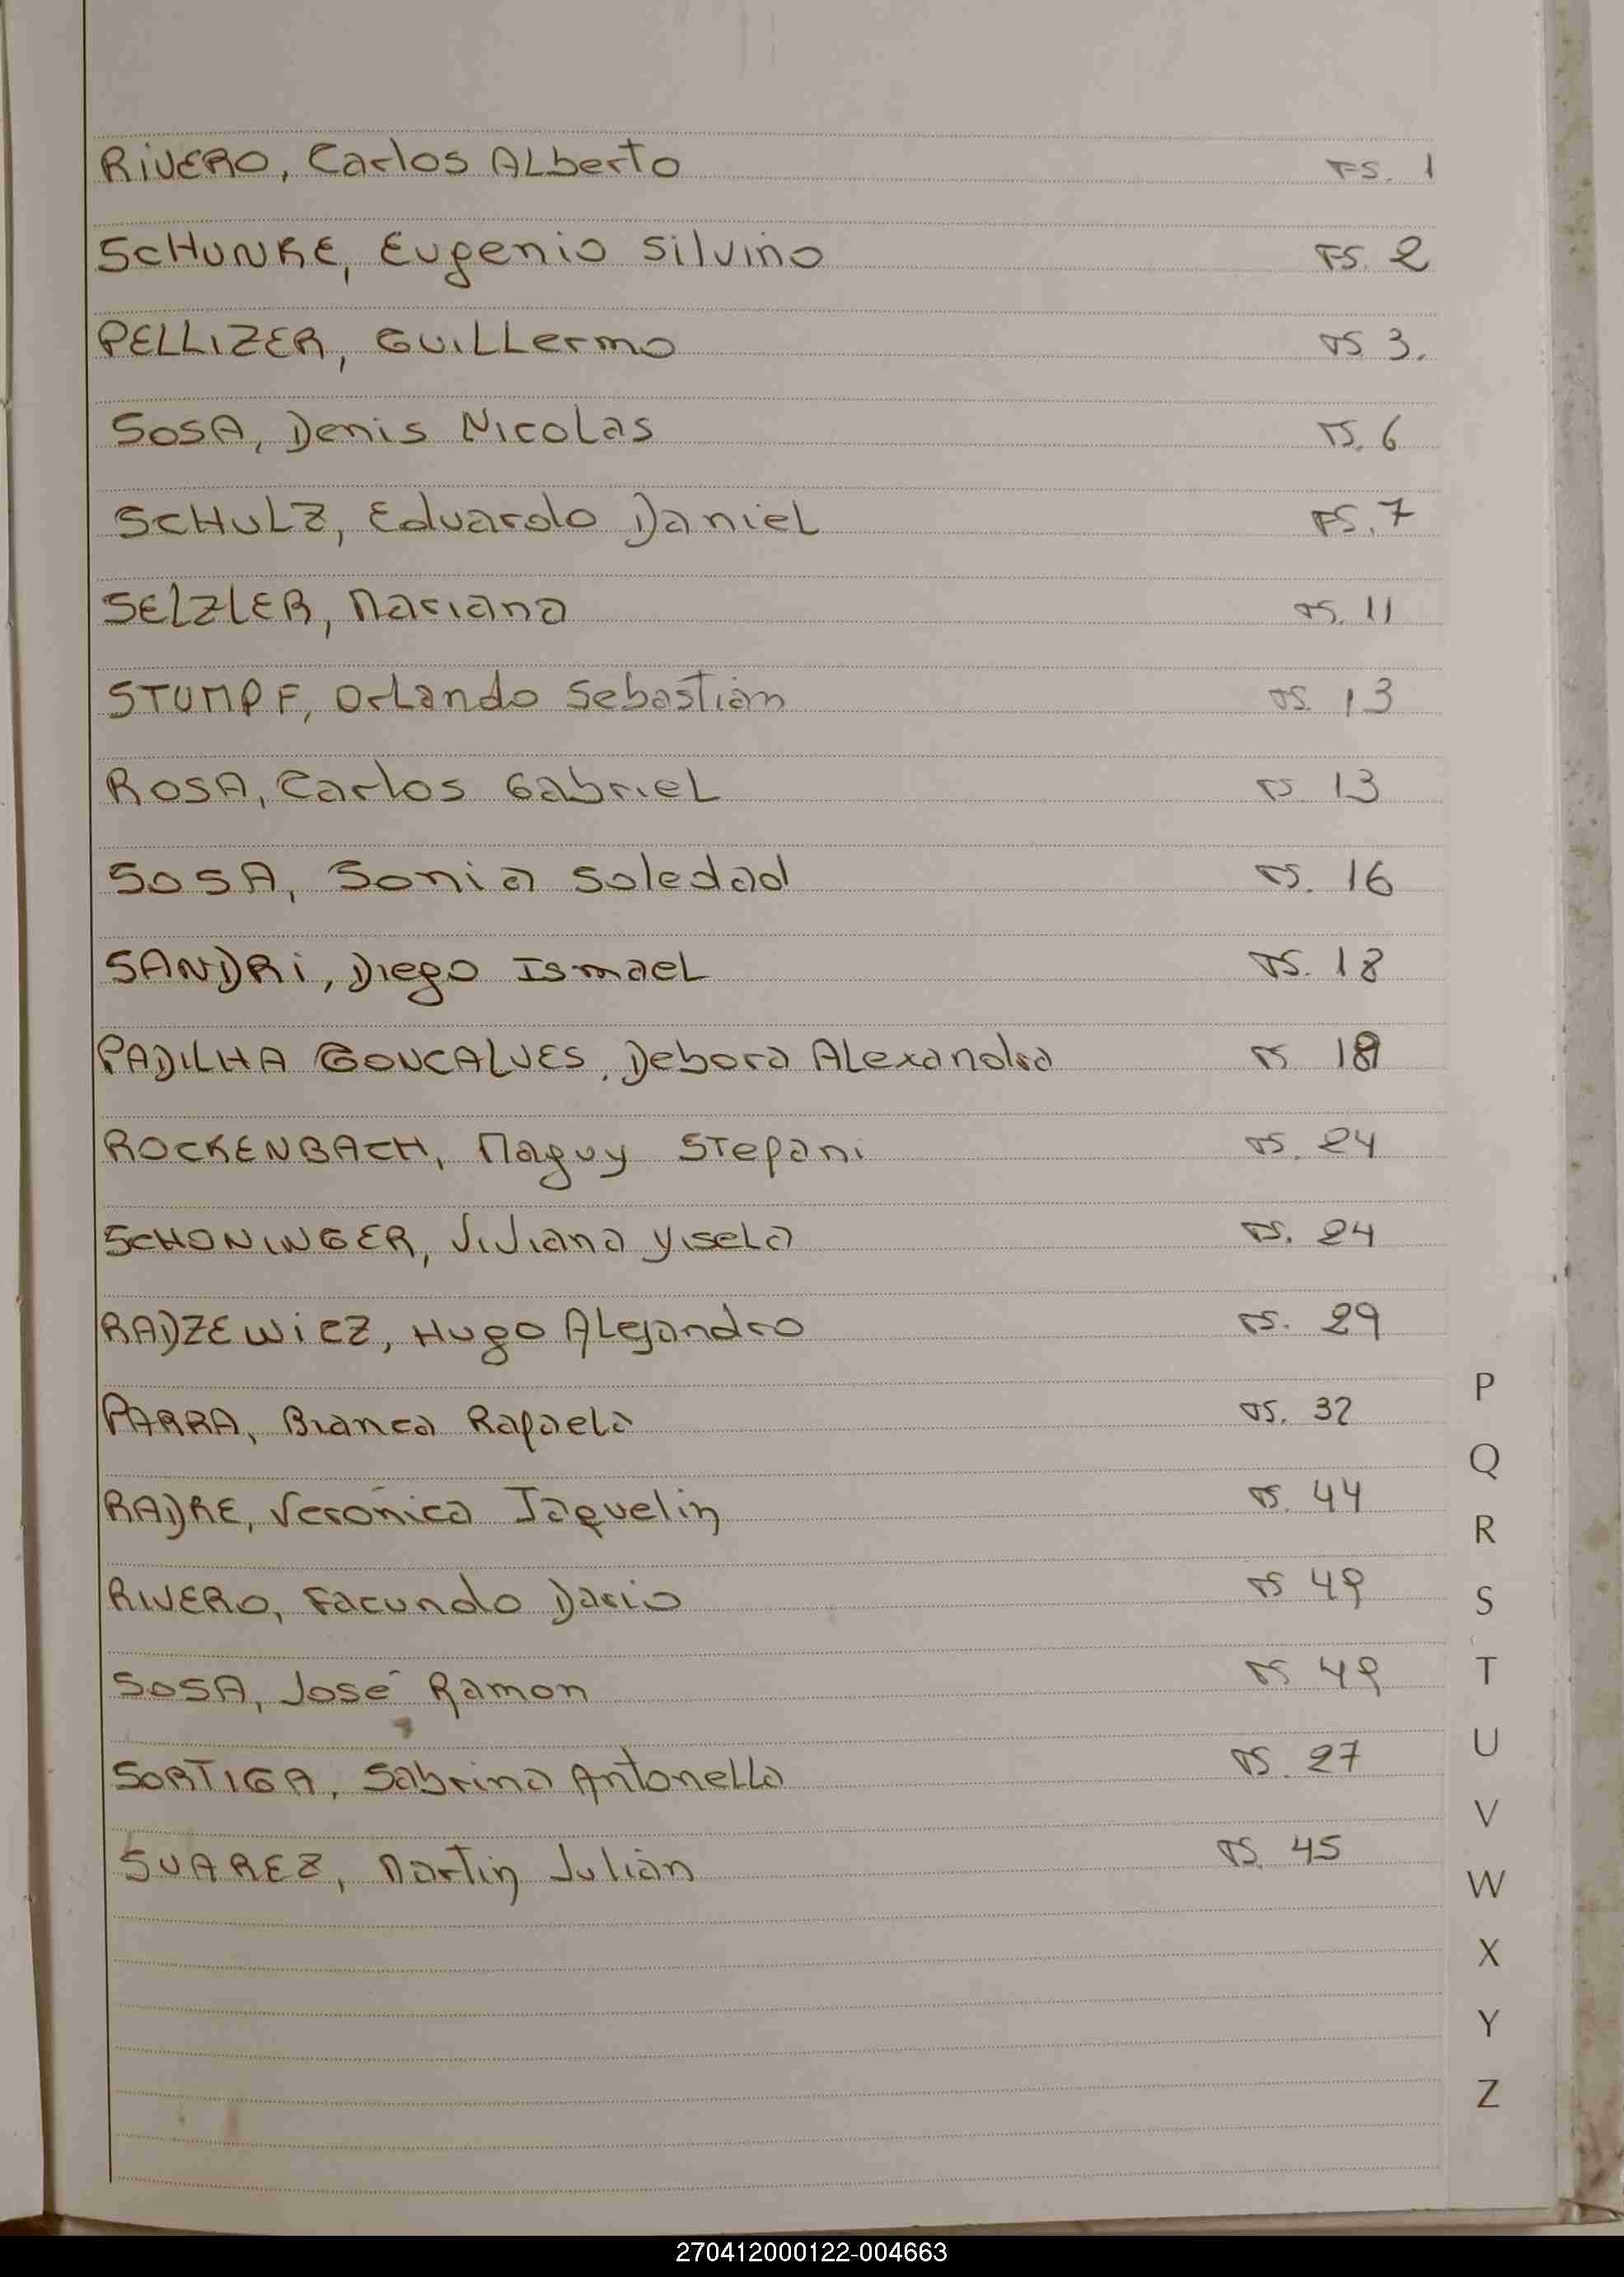 RIVERO, Carlos Alberto FS. 1
SCHUNKE, Eugenio Silvino FS. 2
PELLIZER, Guillermo FS 3.
SOSA, Denis Nicolas FS. 6
SCHULZ, Eduardo Daniel FS. 7
SELZLER, Mariano FS. 11
STUMPF, Orlando Sebastián FS. 13
ROSA, Carlos Gabriel FS. 13
SOSA, Sonia Soledad FS. 16
SANDRI, Diego Ismael FS. 18
PADILHA GONCALVES, Debora Alexandra FS 18
ROCKENBACH, Maguy Stefani FS. 24
SCHONINGER, Viviana Yisela FS. 24
RADZEWICZ, Hugo Alejandro FS. 29
PARRA, Bianca Rafaela FS. 32
RADKE, Verónica Jaquelin FS. 44
RIVERO, Facundo Dario FS 49
SOSA, José Ramon FS 49
SORTIGA, Sabrina Antonella FS. 27
SUAREZ, Martin Julián FS. 45
P
Q
R
S
T
U
V
W
X
Y
Z
270412000122-004663